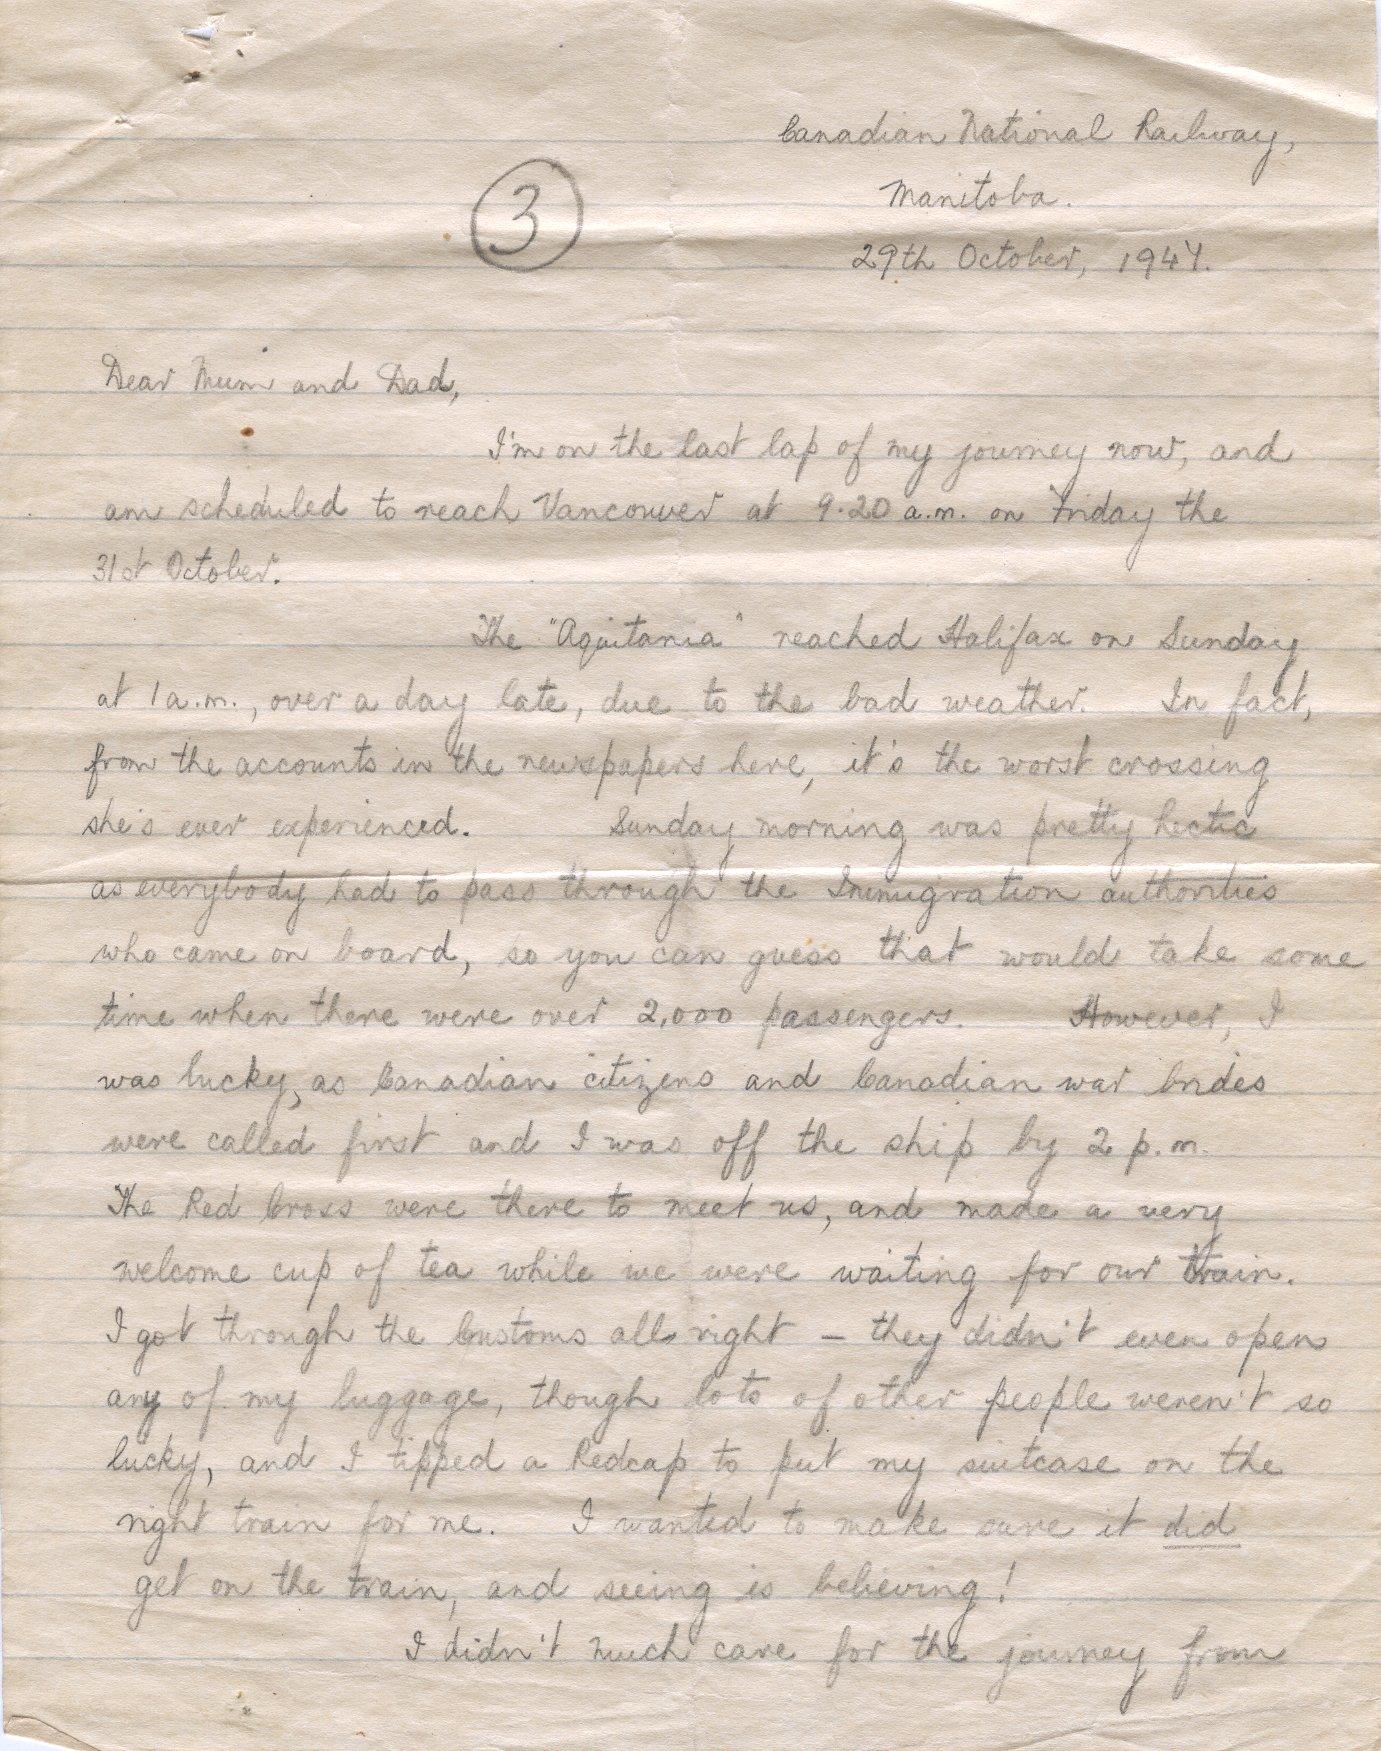 Canadian National Railway,
Manitoba.
3
29th October, 1947.
Dear Mum and Dad,
I'm on the last lap of my journey now, and
am scheduled to reach Vancouver at 9.20 a.m. on Friday the
31st October.
The "Aquitania" reached Halifax on Sunday
at 1 a.m., over a day late, due to the bad weather. In fact,
from the accounts in the newspapers here, it's the worst crossing
she's ever experienced. Sunday morning was pretty hectic
as everybody had to pass through the Immigration authorities
who came on board, so you can guess that would take some
time when there were over 2,000 passengers. However, I
was lucky, as Canadian citizens and Canadian war brides
were called first and I was off the ship by 2 p.m.
The Red Cross were there to meet us, and made a very
welcome cup of tea while we were waiting for our train.
I got through the Customs all right – they didn't even open
any of my luggage, though lots of other people weren't so
lucky, and I tipped a Redcap to put my suitcase on the
right train for me. I wanted to make sure it did
get on the train, and seeing is believing!
I didn't much care for the journey from